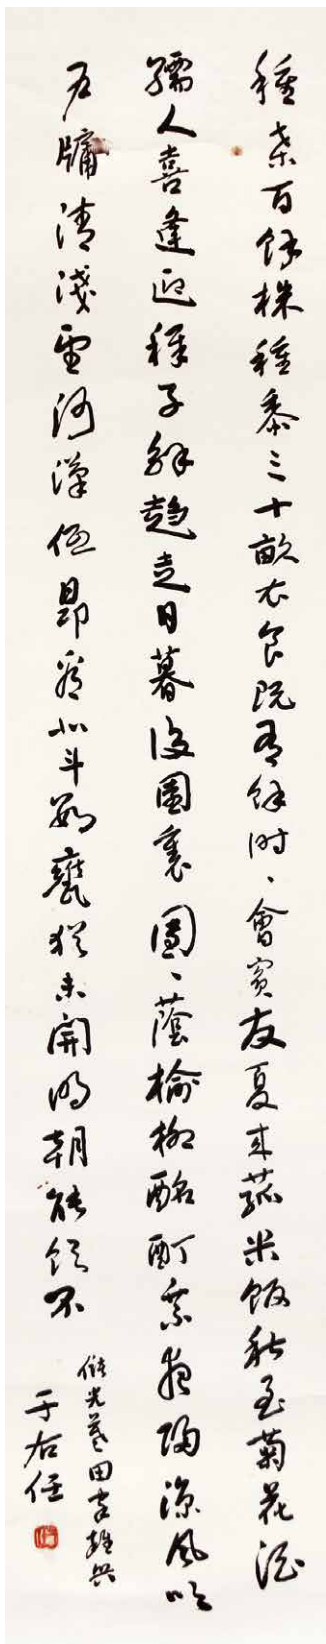 種桑百餘株種黍三十畝衣食既有餘時、會賓友夏來菰米飯秋至菊花酒
孺人喜逢迎稚子解趨走日暮後園裏團、蔭榆柳酩酊乘夜歸涼風吹
戶牖清淺望河漢低昂看北斗數甕猶未開明朝能飲不
儲光羲田家雜興
于右任